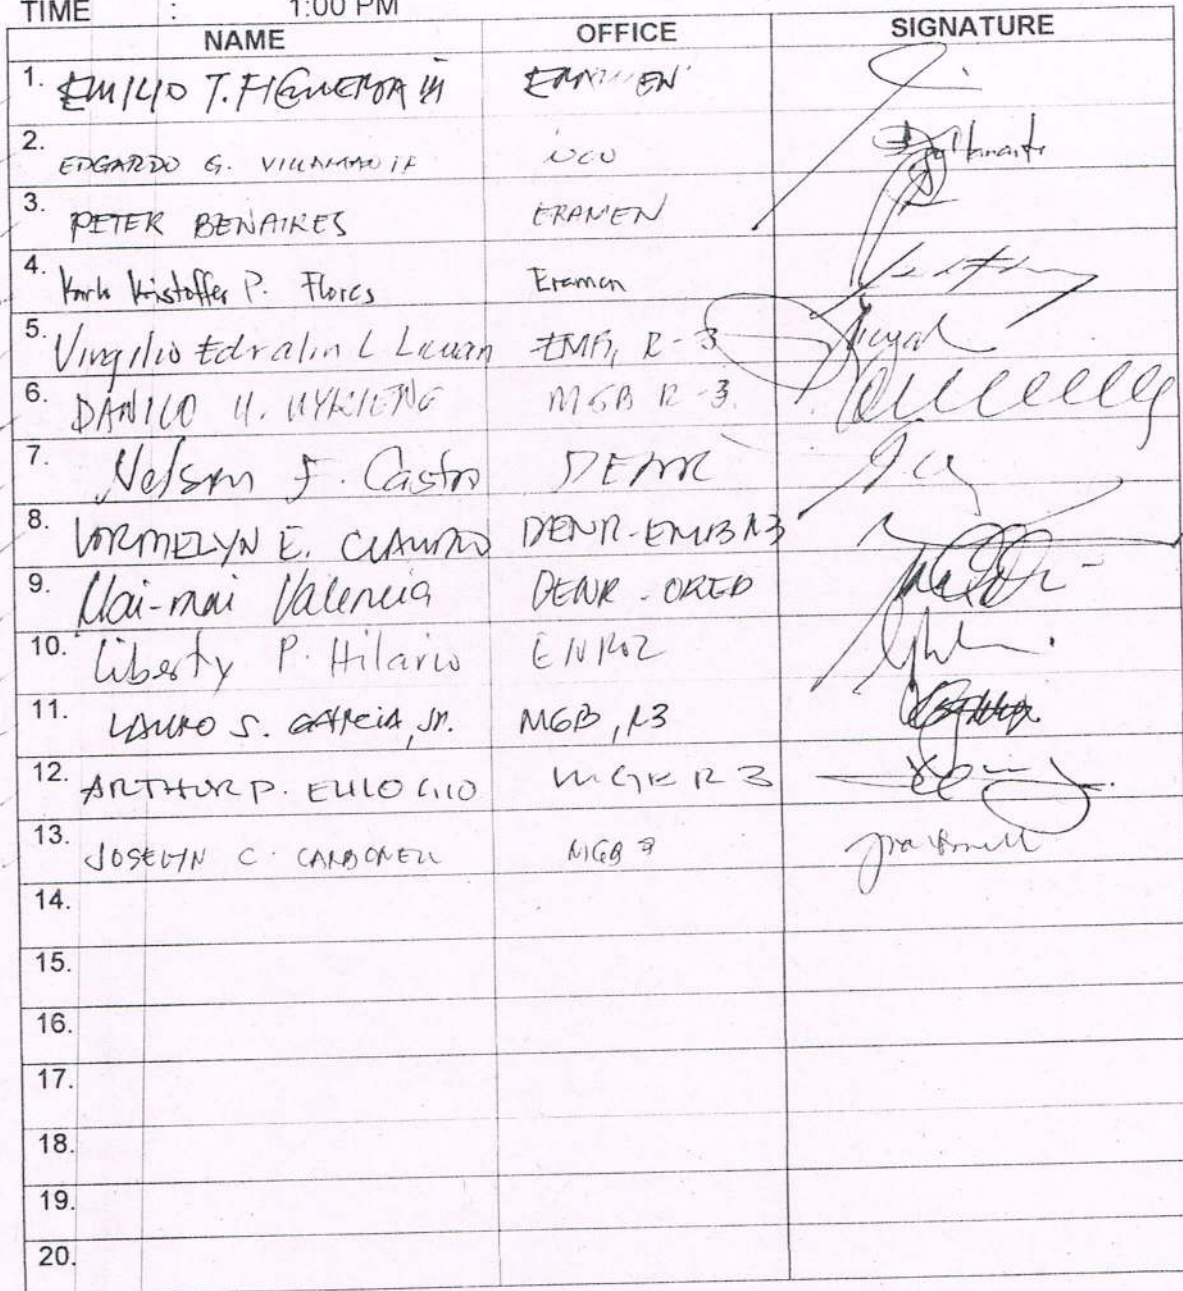 TIME : 1:00 PM
NAME OFFICE SIGNATURE
1. EMILIO T. FIGUEROA III ERAMEN
2. EDGARDO G.
3. PETER BENAIRES ERAMEN
4. Karlo Kristoffer P. Flores Eramen
5. Virgilio Edralin L Licuan EMB, R-3
6. DANILO U. UYKIENG MGB R-3.
7. Nelson F. Castro DENR
8. LORMELYN E. CLAUDIO DENR-EMB R3
9. Mai-mai Valencia DENR - ORED
10. Liberty P. Hilario
11. LAURO S. GARCIA, JR. MGB, R3
12. ARTHUR P. EULOGIO MGB R 3
13. JOSELYN C. CARBONELL MGB 3
14.
15.
16.
17.
18.
19.
20.